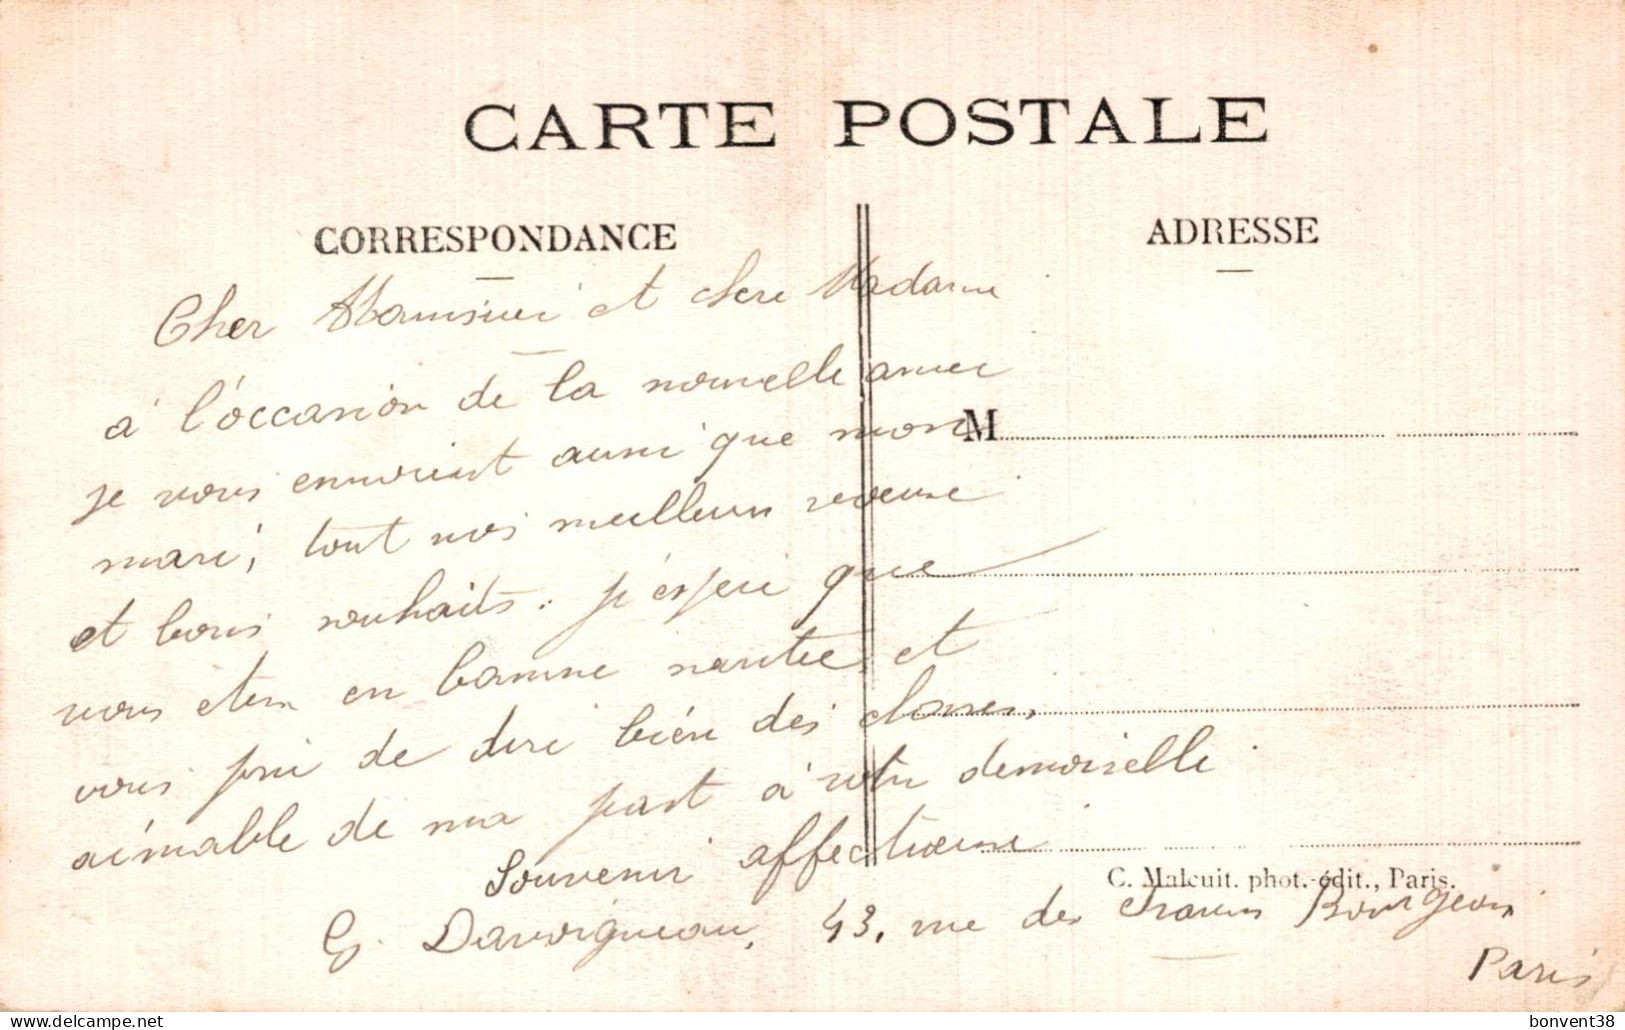 CARTE POSTALE
CORRESPONDANCE
ADRESSE
Cher Monsieur et chere Madame
à l'occasion de la nouvelle annee
je vous envoient aussi que mon
mari, tout nos meilleurs
et bons souhaits. j'esperé que
vous etes en bonne santée et
vous prie de dire bién des choses
aimable de ma part à votre demoiselle
Souvenir affectueux
G. Davoigneau, 43, rue des Francs Bourgeois
Paris
M
C. Malcuit. phot.-édit., Paris.
bonvent38